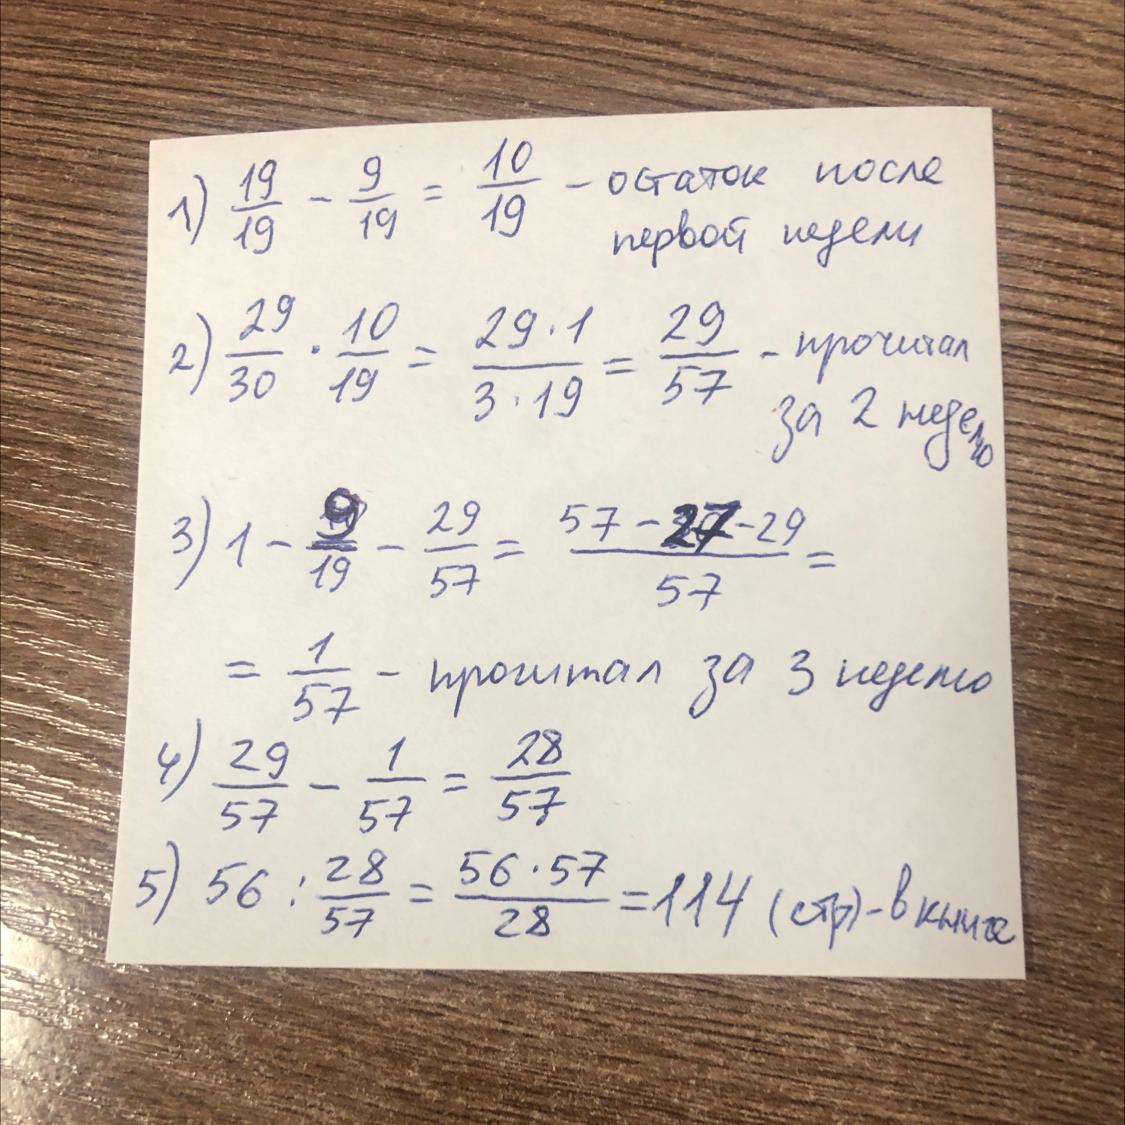 1) 19/19 - 9/19 = 10/19 - остаток после
первой недели
2) 29/30 · 10/19 = 29·1/3·19 = 29/57 - прочитал
за 2 неделю
3) 1 - 9/19 - 29/57 = 57-27-29/57 =
= 1/57 - прочитал за 3 неделю
4) 29/57 - 1/57 = 28/57
5) 56 : 28/57 = 56·57/28 = 114 (стр) - в книге